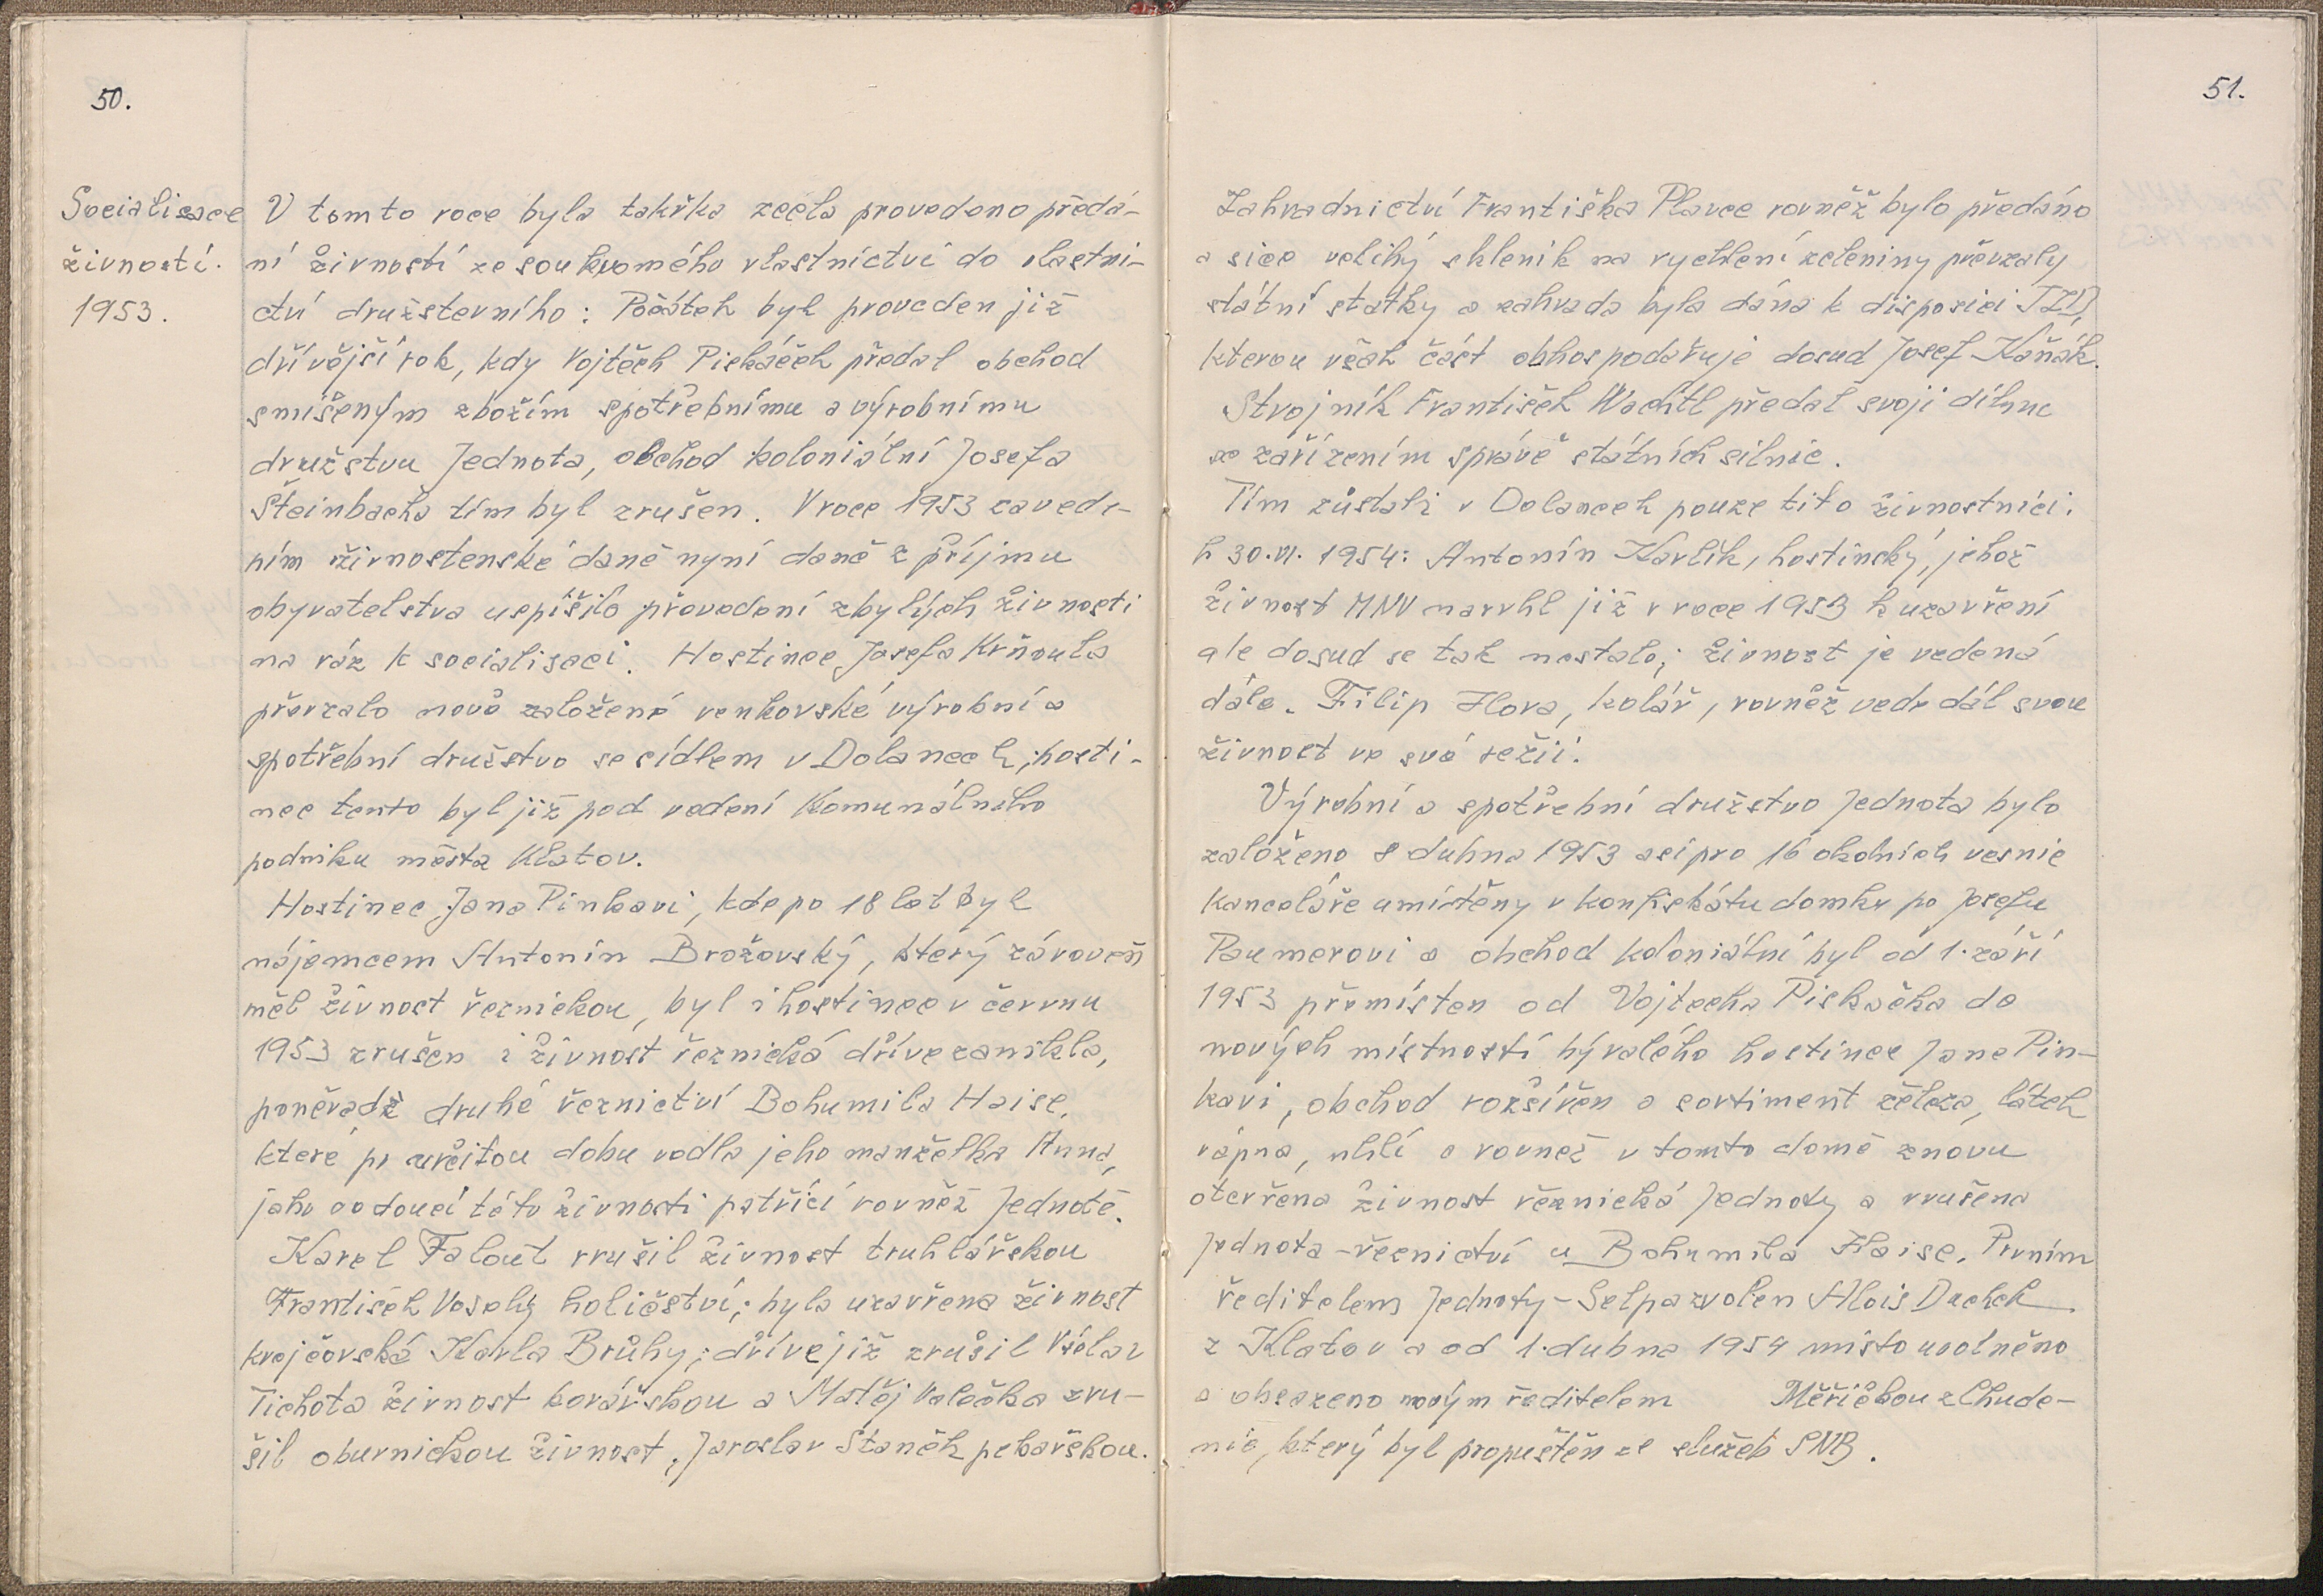 50.
Socialisace
živností.
1953.
V tomto roce byla takřka zcela provedeno předá-
ní živností ze soukromého vlastnictví do vlastni-
ctví družstevního: Počátek byl proveden již
dřívější rok, kdy Vojtěch Piskáček předal obchod
smíšeným zbožím spotřebnímu a výrobnímu
družstvu Jednota, obchod koloniální Josefa
Šteinbacha tím byl zrušen. V roce 1953 zavede-
ním živnostenské daně nyní daně z příjmu
obyvatelstva uspíšilo převedení zbylých živností
na ráz k socialisaci. Hostinec Josefa Krňoula
převzalo nově založené venkovské výrobní a
spotřební družstvo se sídlem v Dolanech, hosti-
nec tento byl již pod vedení Komunálního
podniku města Klatov.
Hostinec Jana Pinkavi, kde po 18 let byl
nájemcem Antonín Brožovský, který zároveň
měl živnost řeznickou, byl i hostinec v červnu
1953 zrušen i živnost řeznická dříve zanikla,
poněvadž druhé řeznictví Bohumila Haise,
které po určitou dobu vedla jeho manželka Anna,
jako vedoucí této živnosti patřící rovněž Jednotě.
Karel Falout zrušil živnost truhlářskou
František Veselý holičství; byla uzavřena živnost
krejčovská Karla Brůhy; dříve již zrušil Václav
Tichota živnost kovářskou a Matěj Valečka zru-
šil obuvnickou živnost, Jaroslav Staněk pekařskou.
51.
Zahradnictví Františka Plavce rovněž bylo předáno
a sice veliký skleník na rychlení zeleniny převzaly
státní statky a zahrada byla dána k disposici JZD,
kterou však část obhospodařuje dosud Josef Kaňák.
Strojník František Wachtl předal svoji dílnu
se zařízením správě státních silnic.
Tím zůstali v Dolanech pouze tito živnostníci:
k 30.VI. 1954: Antonín Karlík, hostinský, jehož
živnost MNV navrhl již v roce 1953 k uzavření
ale dosud se tak nestalo; živnost je vedená
dále. Filip Hora, kolář, rovněž vede dál svou
živnost ve své režii.
Výrobní a spotřební družstvo Jednota bylo
založeno 8 dubna 1953 asi pro 16 okolních vesnic
kanceláře umístěny v konfiskátu domku po Josefu
Paumerovi a obchod koloniální byl od 1. září
1953 přemísten od Vojtecha Piskačka do
nových místností bývalého hostince Jana Pin-
kavi, obchod rozšířen o sortiment železa, látek
vápna, uhlí a rovnež v tomto domě znovu
otevřena živnost řeznická Jednoty a zrušena
Jednota - řeznictví u Bohumila Haise. Prvním
ředitelem Jednoty - Selpa zvolen Alois Duchek
z Klatov a od 1. dubna 1954 místo uvolněno
a obsazeno novým ředitelem Měřičkou z Chude-
nic, který byl propuštěn ze služeb SNB.